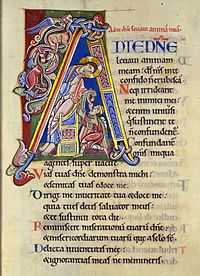 Ad te dñe leuaui animã meã
D TE DÑE
leuaui animam
meam : d̃s m̃s in te
confido non erubescã.
Neq; irrideant
me inimici mei :
&enim uniuersi
qui sustinent te ñ
confundentur.
Confundant om̃s
agentes super uacue
Vias tuas dñe demonstra michi :
& semitas tuas edoce me.
Dirige me in ueritate tua & doce me :
quia tu es deus saluator meus
& te sustinui tota die.
Reminiscere miserationũ tuarũ dñe :
& misericordiarum tuarũ que a sc̃lo s̃.
Delicta iuuentutis mee :
& ignorantias meas ne memineris.